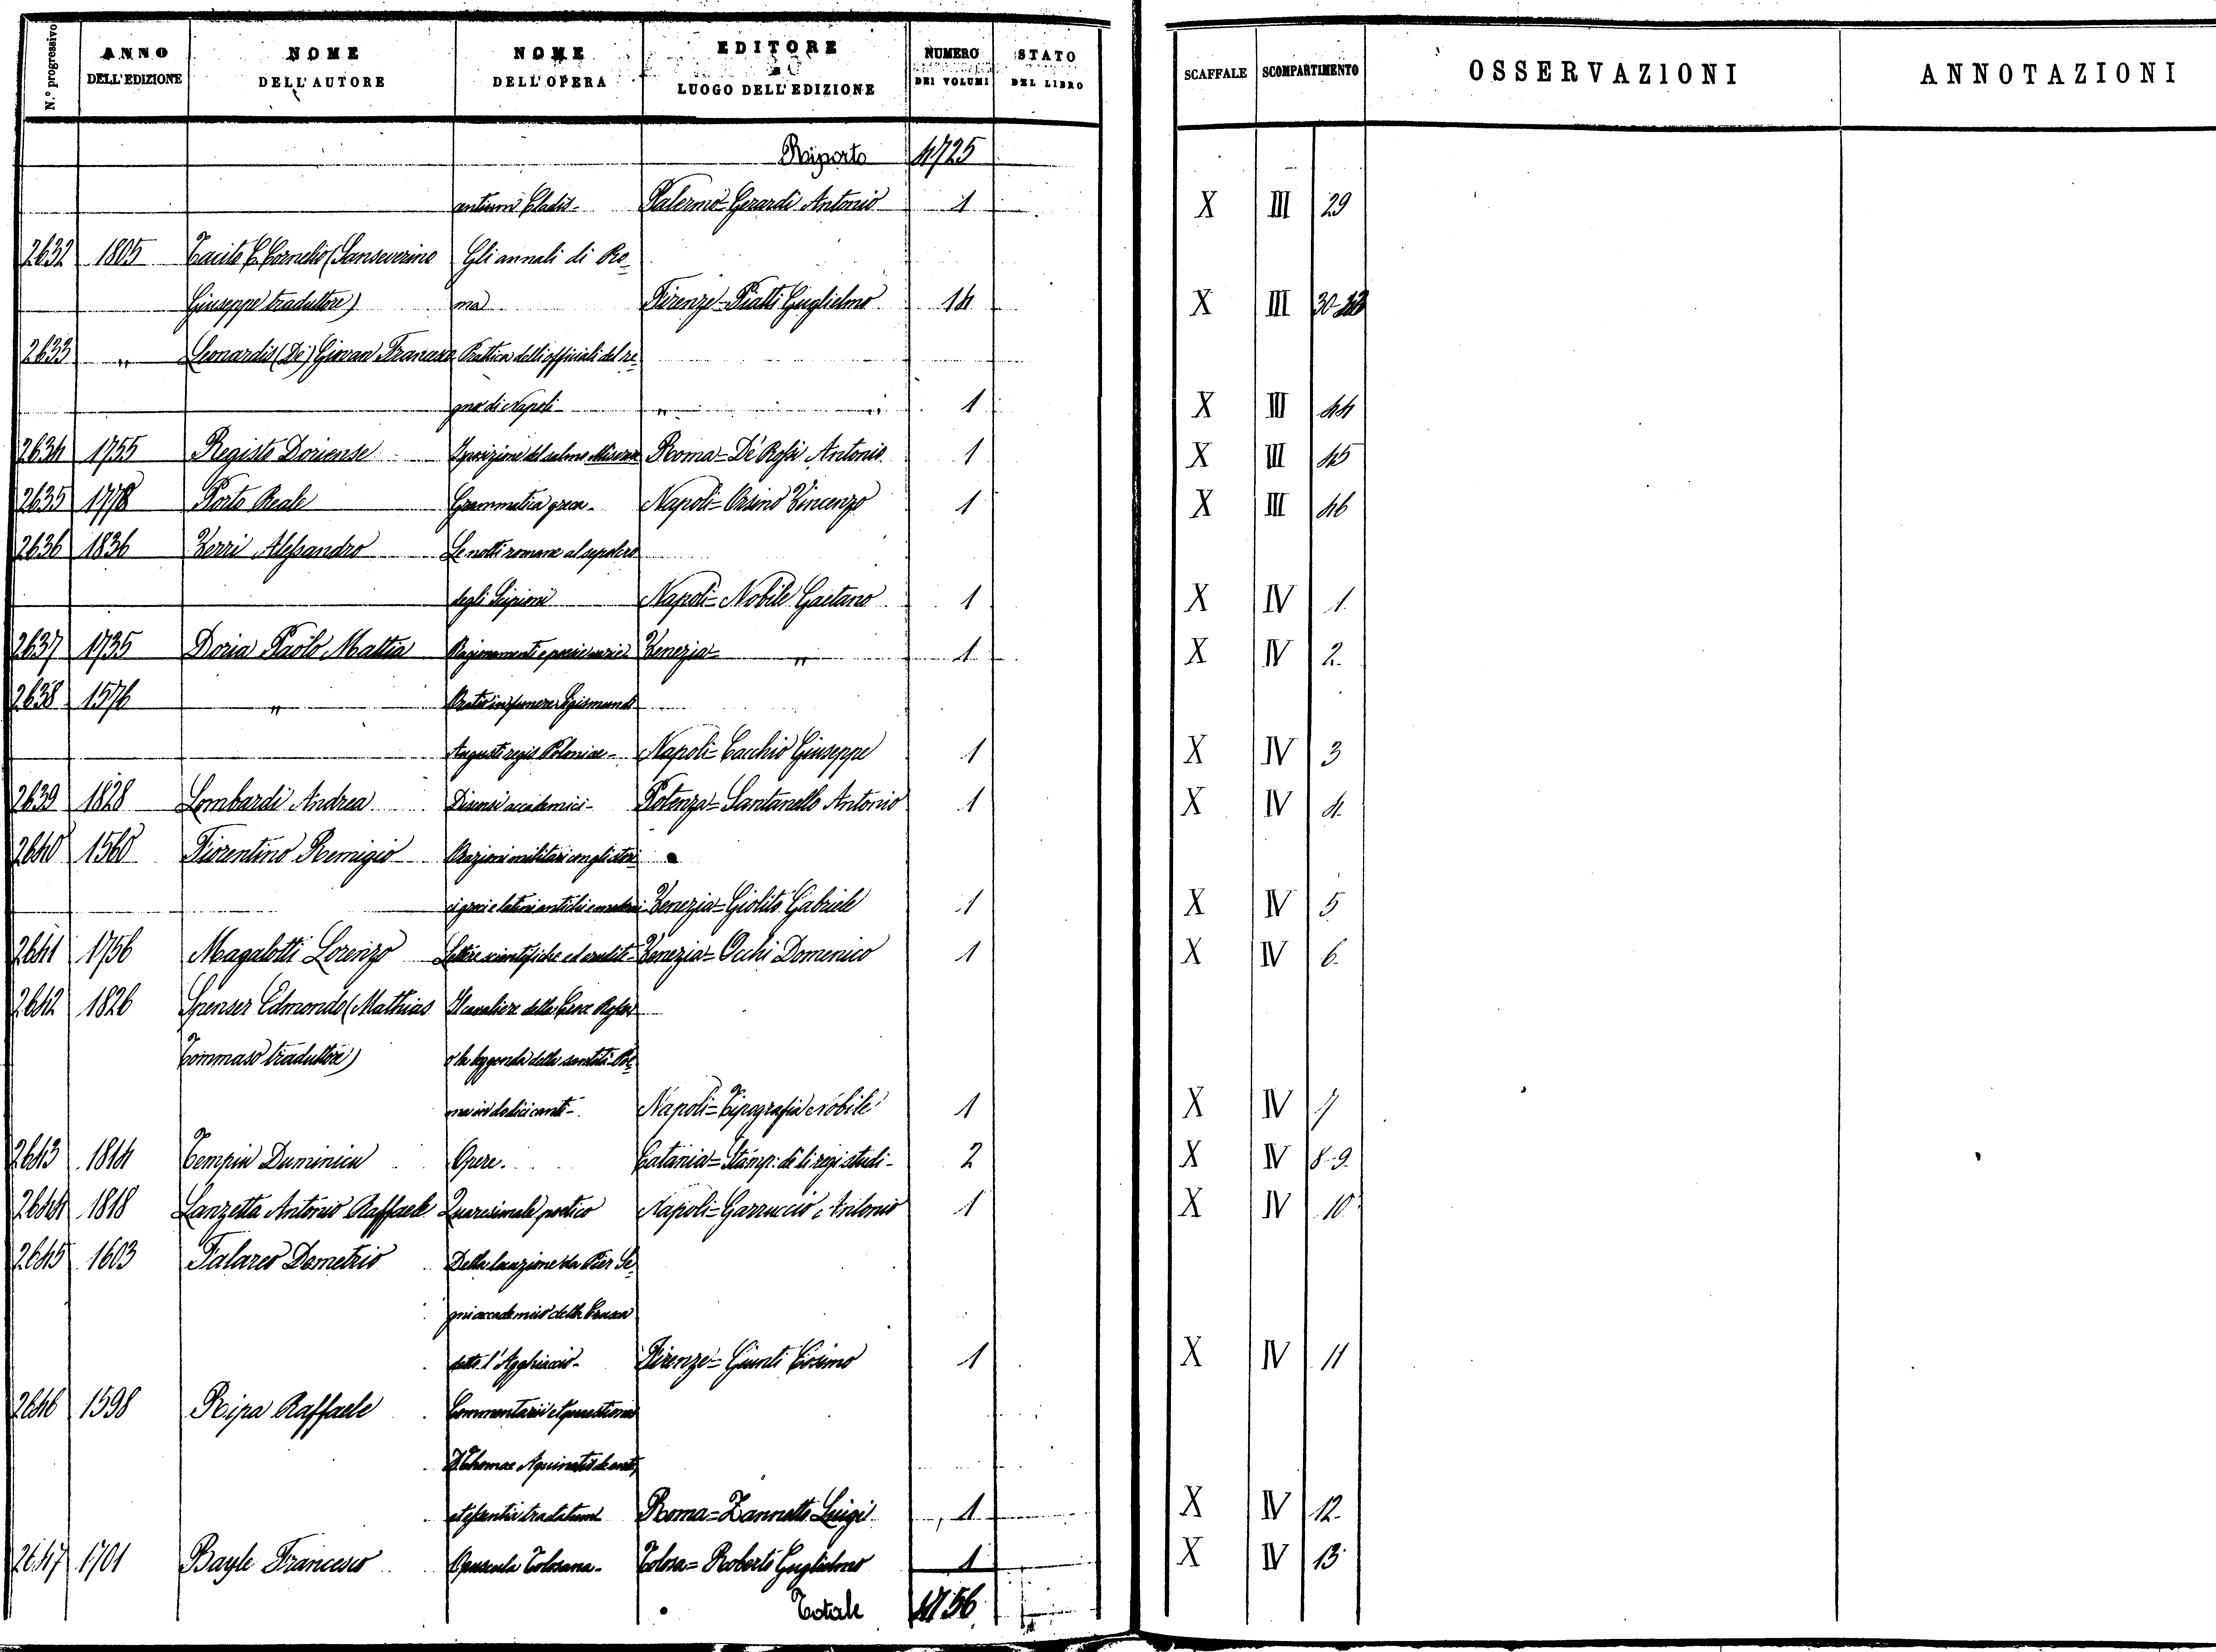 N.° progressivo | ANNO DELL'EDIZIONE | NOME DELL'AUTORE | NOME DELL'OPERA | EDITORE E LUOGO DELL'EDIZIONE | NUMERO DEI VOLUMI | STATO DEL LIBRO | SCAFFALE | SCOMPARTIMENTO | OSSERVAZIONI | ANNOTAZIONI
Riporto 4725
antium Cladis - Palermo - Gerardi Antonio 1 X III 29
2632 1805 Tacito C. Cornelio (Sanseverino Gli annali di Ro-
Giuseppe traduttore) ma Firenze - Piatti Guglielmo 14 X III 30-43
2633 " Leonardis (De) Giovan Francesco Prattica delli officiali del re-
gno di Napoli - " " 1 X III 44
2634 1755 Registo Doriense Sposizione del salmo Miserere Roma - De Rossi Antonio 1 X III 45
2635 1778 Porto Reale Grammatica greca - Napoli = Orsino Vincenzo 1 X III 46
2636 1836 Verri Alessandro Le notti romane al sepolcro
degli Scipioni Napoli = Nobile Gaetano 1 X IV 1.
2637 1735 Doria Paolo Mattia Ragionamenti e poesie varie Venezia = " 1 X IV 2.
2638 1576 " Oratio in funere Sigismundi
Augusti regis Poloniae - Napoli = Cacchio Giuseppe 1 X IV 3
2639 1828 Lombardi Andrea Discorsi accademici - Potenza = Santanello Antonio 1 X IV 4.
2640 1560 Fiorentino Remigio Orazioni militari con gli stori-
ci greci e latini antichi e moderni Venezia = Giolito Gabriele 1 X IV 5
2641 1756 Magalotti Lorenzo Lettere scientifiche ed erudite - Venezia = Occhi Domenico 1 X IV 6.
2642 1826 Spenser Edmondo (Mathias Il cavaliere della Croce Rossa
Tommaso traduttore) o la leggenda della santità Poe-
ma in dodici canti - Napoli = Tipografia Nobile 1 X IV 7
2643 1814 Tempiu Duminicu Opere. Catania = Stamp: de li regi studi - 2 X IV 8-9.
2644 1818 Lanzetta Antonio Raffaele Quaresimale poetico Napoli = Garruccio Antonio 1 X IV 10
2645 1603 Falareo Demetrio Della locuzione da Pier Se-
gni accademico della Crusca
detto l'Agghiacciò - Firenze = Giunti Cosimo 1 X IV 11
2646 1598 Ripa Raffaele Commentarii et quaestiones
D. Thomae Aquinatis de ente
et essentia tractatum Roma = Zannetto Luigi 1 X IV 12.
2647 1701 Bayle Francesco Opuscula Tolosana - Tolosa = Roberto Guglielmo 1 X IV 13
Totale 4756